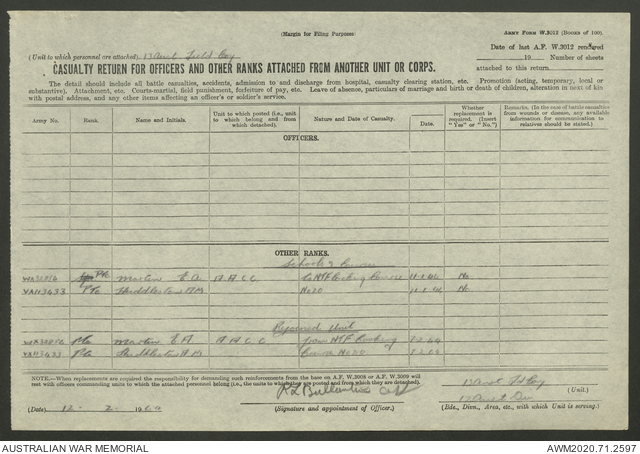 (Margin for Filing Purposes)
ARMY FORM W.3012 (BOOKS OF 100).
Date of last A.F. W.3012 rendered
19 Number of sheets
attached to this return
(Unit to which personnel are attached) 13 Aust Field Coy
CASUALTY RETURN FOR OFFICERS AND OTHER RANKS ATTACHED FROM ANOTHER UNIT OR CORPS.
The detail should include all battle casualties, accidents, admission to and discharge from hospital, casualty clearing station, etc. Promotion (acting, temporary, local or
substantive), Attachment, etc. Courts-martial, field punishment, forfeiture of pay, etc. Leave of absence, particulars of marriage and birth or death of children, alteration in next of kin
with postal address, and any other items affecting an officer's or soldier's service.
Army No. Rank. Name and Initials. Unit to which posted (i.e., unit to which belong and from which detached). Nature and Date of Casualty. Date. Whether replacement is required. (Insert "Yes" or "No.") Remarks. (In the case of battle casualties from wounds or disease, any available information for communication to relatives should be stated.)
OFFICERS.
OTHER RANKS.
Schools &
Pte Martin E A A A C C to Cooking No
VX113433 Pte No 20 No
Rejoined Unit
Pte Martin E A A A C C from Cooking 7.2.44
VX113433 Pte No 20 7.2.44
NOTE.—When replacements are required the responsibility for demanding such reinforcements from the base on A.F. W.3008 or A.F. W.3009 will
rest with officers commanding units to which the attached personnel belong (i.e., the units to which they are posted and from which they are detached).
Capt 13 Aust Fd Coy (Unit.)
(Date) 12. 2. 1944 (Signature and appointment of Officer.)
(Bde., Divn., Area, etc., with which Unit is serving.)
AUSTRALIAN WAR MEMORIAL AWM2020.71.2597